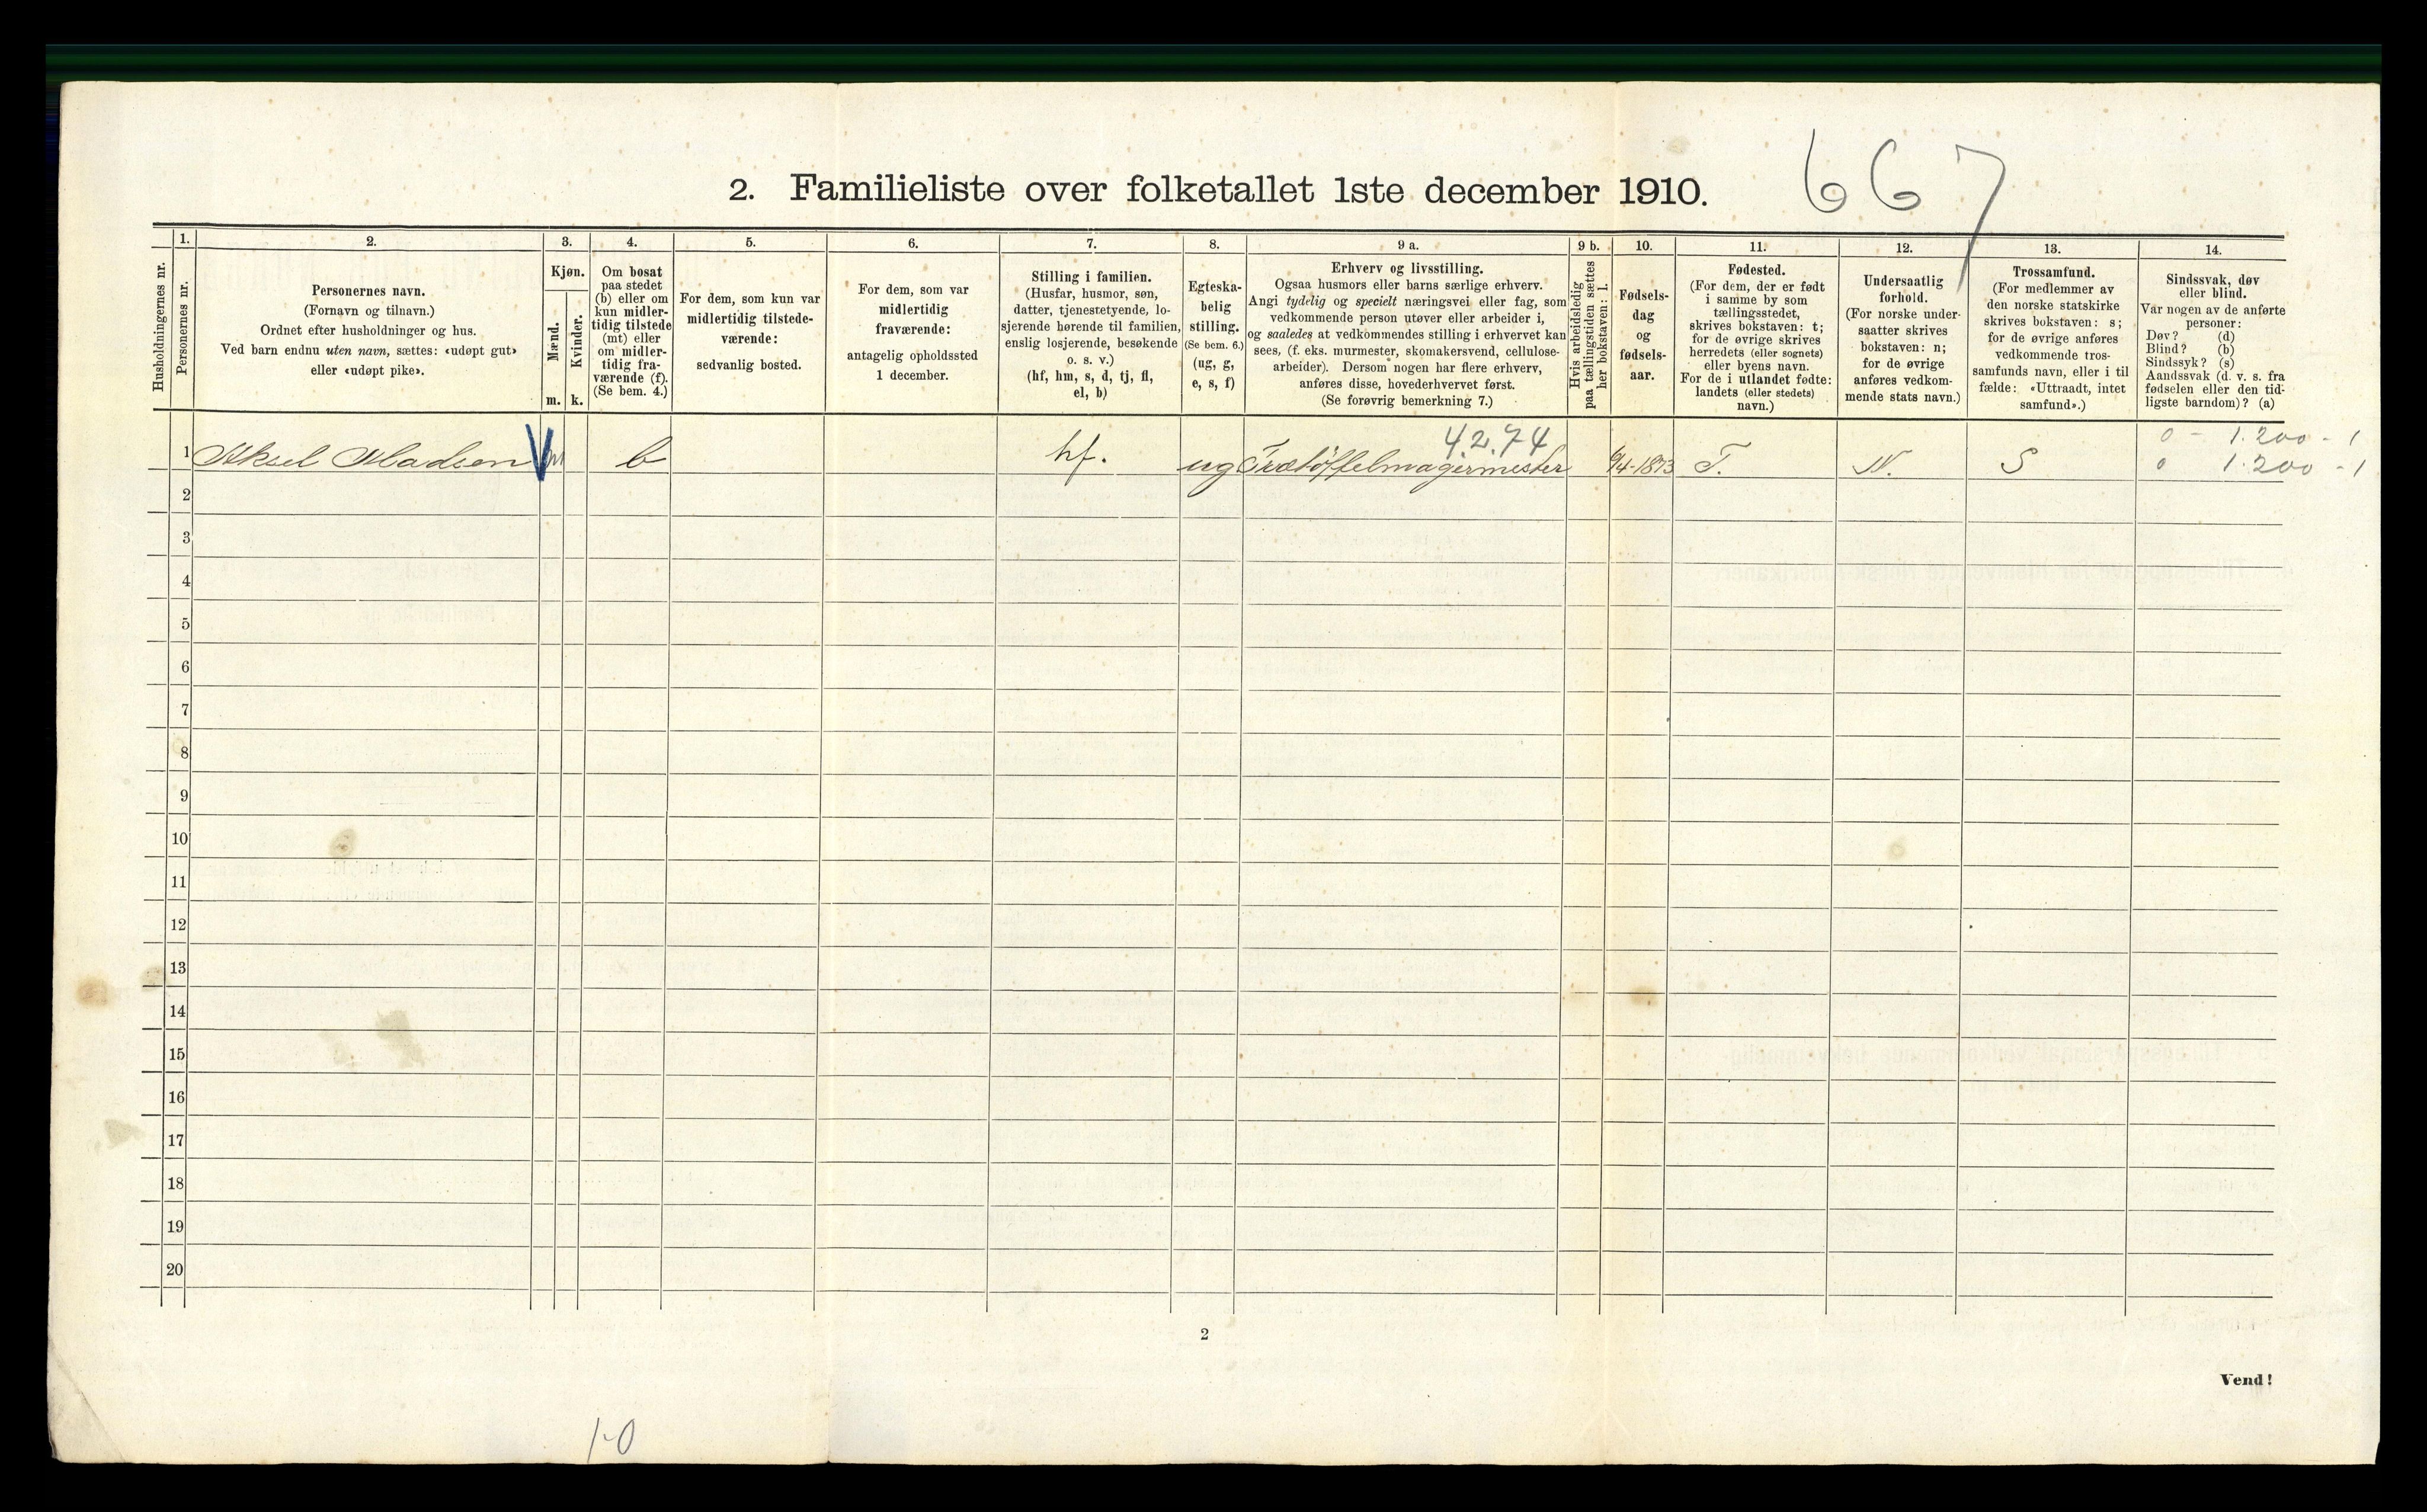 667
2. Familieliste over folketallet 1ste december 1910.
Husholdningernes nr.
1.
Personernes nr.
2.
Personernes navn.
(Fornavn og tilnavn.)
Ordnet efter husholdninger og hus.
Ved barn endnu uten navn, sættes: «udøpt gut»
eller «udøpt pike».
3.
Kjøn.
Mænd.
m.
Kvinder.
k.
4.
Om bosat
paa stedet
(b) eller om
kun midler-
tidig tilstede
(mt) eller
om midler-
tidig fra-
værende (f).
(Se bem. 4.)
5.
For dem, som kun var
midlertidig tilstede-
værende:
sedvanlig bosted.
6.
For dem, som var
midlertidig
fraværende:
antagelig opholdssted
1 december.
7.
Stilling i familien.
(Husfar, husmor, søn,
datter, tjenestetyende, lo-
sjerende hørende til familien,
enslig losjerende, besøkende
o. s. v.)
(hf, hm, s, d, tj, fl,
el, b)
8.
Egteska-
belig
stilling.
(Se bem. 6.)
(ug, g,
e, s, f)
9 a.
Erhverv og livsstilling.
Ogsaa husmors eller barns særlige erhverv.
Angi tydelig og specielt næringsvei eller fag, som
vedkommende person utøver eller arbeider i,
og saaledes at vedkommendes stilling i erhvervet kan
sees, (f. eks. murmester, skomakersvend, cellulose-
arbeider). Dersom nogen har flere erhverv,
anføres disse, hovederhvervet først.
(Se forøvrig bemerkning 7.)
9 b.
Hvis arbeidsledig
paa tællingstiden sættes
her bokstaven: l.
10.
Fødsels-
dag
og
fødsels-
aar.
11.
Fødested.
(For dem, der er født
i samme by som
tællingsstedet,
skrives bokstaven: t;
for de øvrige skrives
herredets (eller sognets)
eller byens navn.
For de i utlandet fødte:
landets (eller stedets)
navn.)
12.
Undersaatlig
forhold.
(For norske under-
saatter skrives
bokstaven: n;
for de øvrige
anføres vedkom-
mende stats navn.)
13.
Trossamfund.
(For medlemmer av
den norske statskirke
skrives bokstaven: s;
for de øvrige anføres
vedkommende tros-
samfunds navn, eller i til-
fælde: «Uttraadt, intet
samfund».)
14.
Sindssvak, døv
eller blind.
Var nogen av de anførte
personer:
Døv? (d)
Blind? (b)
Sindssyk? (s)
Aandssvak (d. v. s. fra
fødselen eller den tid-
ligste barndom)? (a)
42.74
0 - 1.200 - 1
1 Aksel Madsen m b hf. ug Trætøffelmagermester 6/4-1873 T. N. S 0 1.200 - 1
2
3
4
5
6
7
8
9
10
11
12
13
14
15
16
17
18
19
20
2
Vend!
1-0